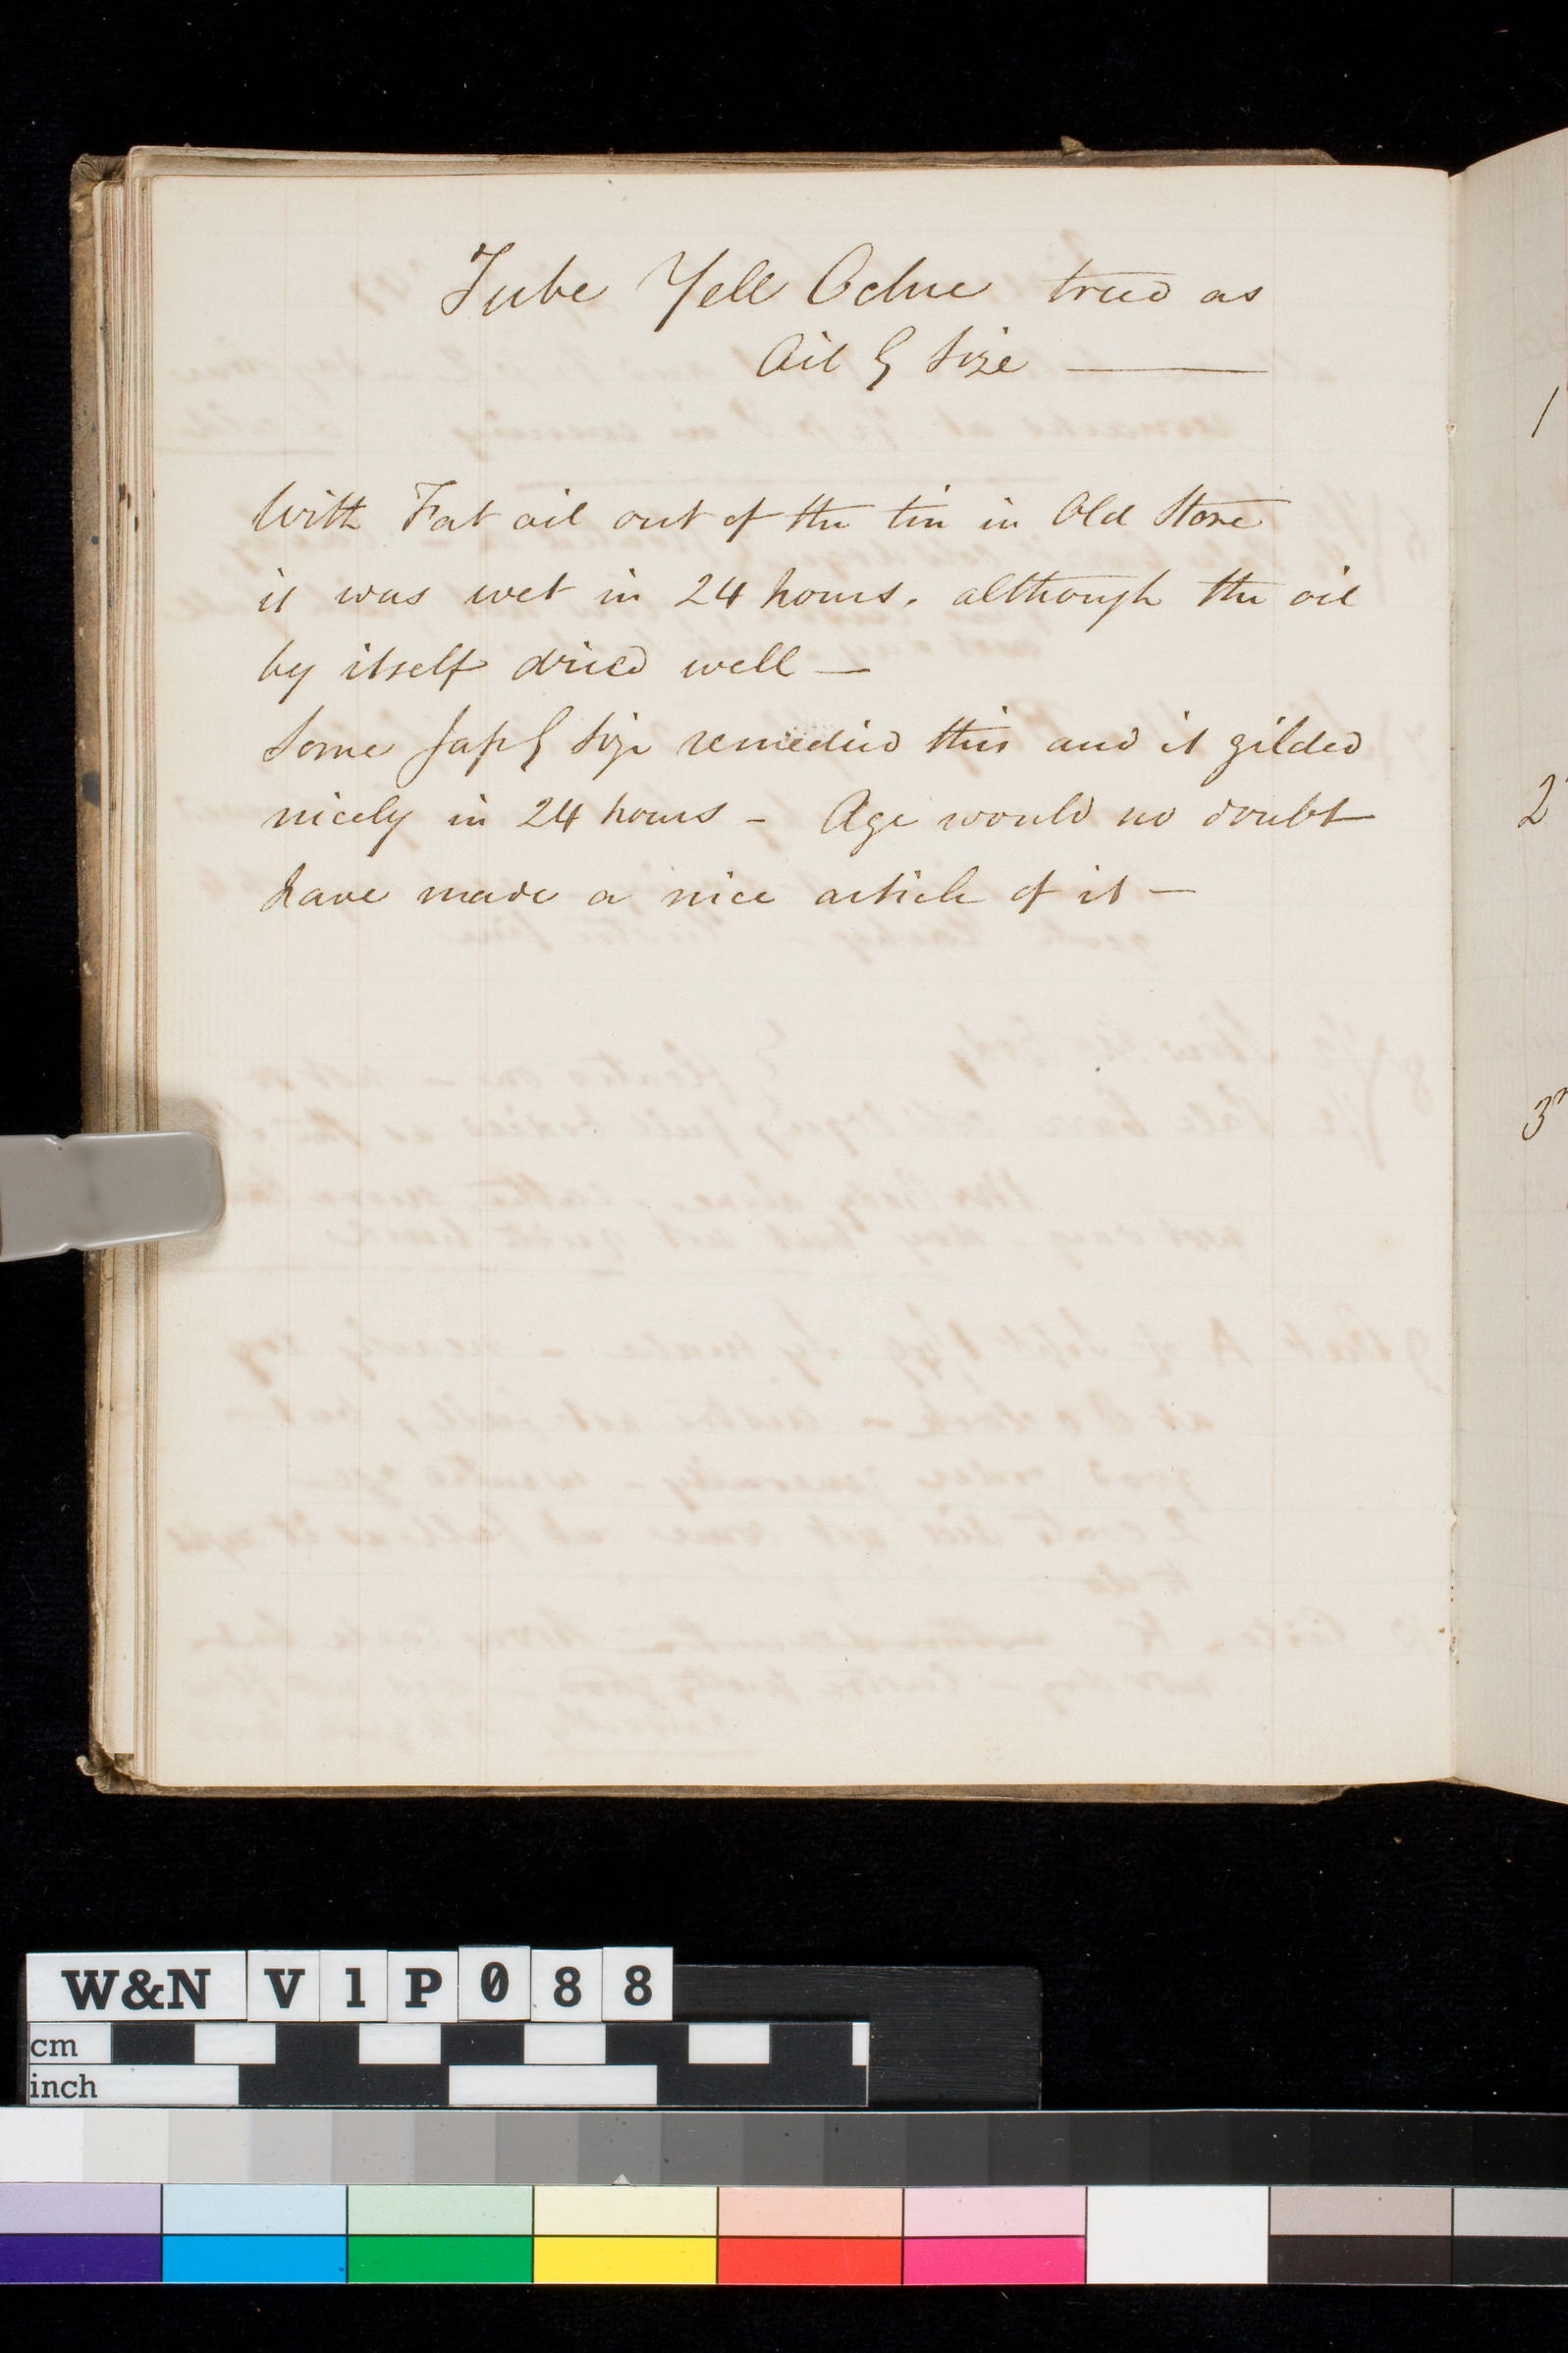 Tube Yell Ochre tried as
Oil G Size
With Fat oil out of the tin in Old Store
it was wet in 24 hours. although the oil
by itself dried well —
Some Jap G Size remedied this and it gilded
nicely in 24 hours – Age would no doubt
have made a nice article of it —
1
2
3
W&N V1P088
cm
inch